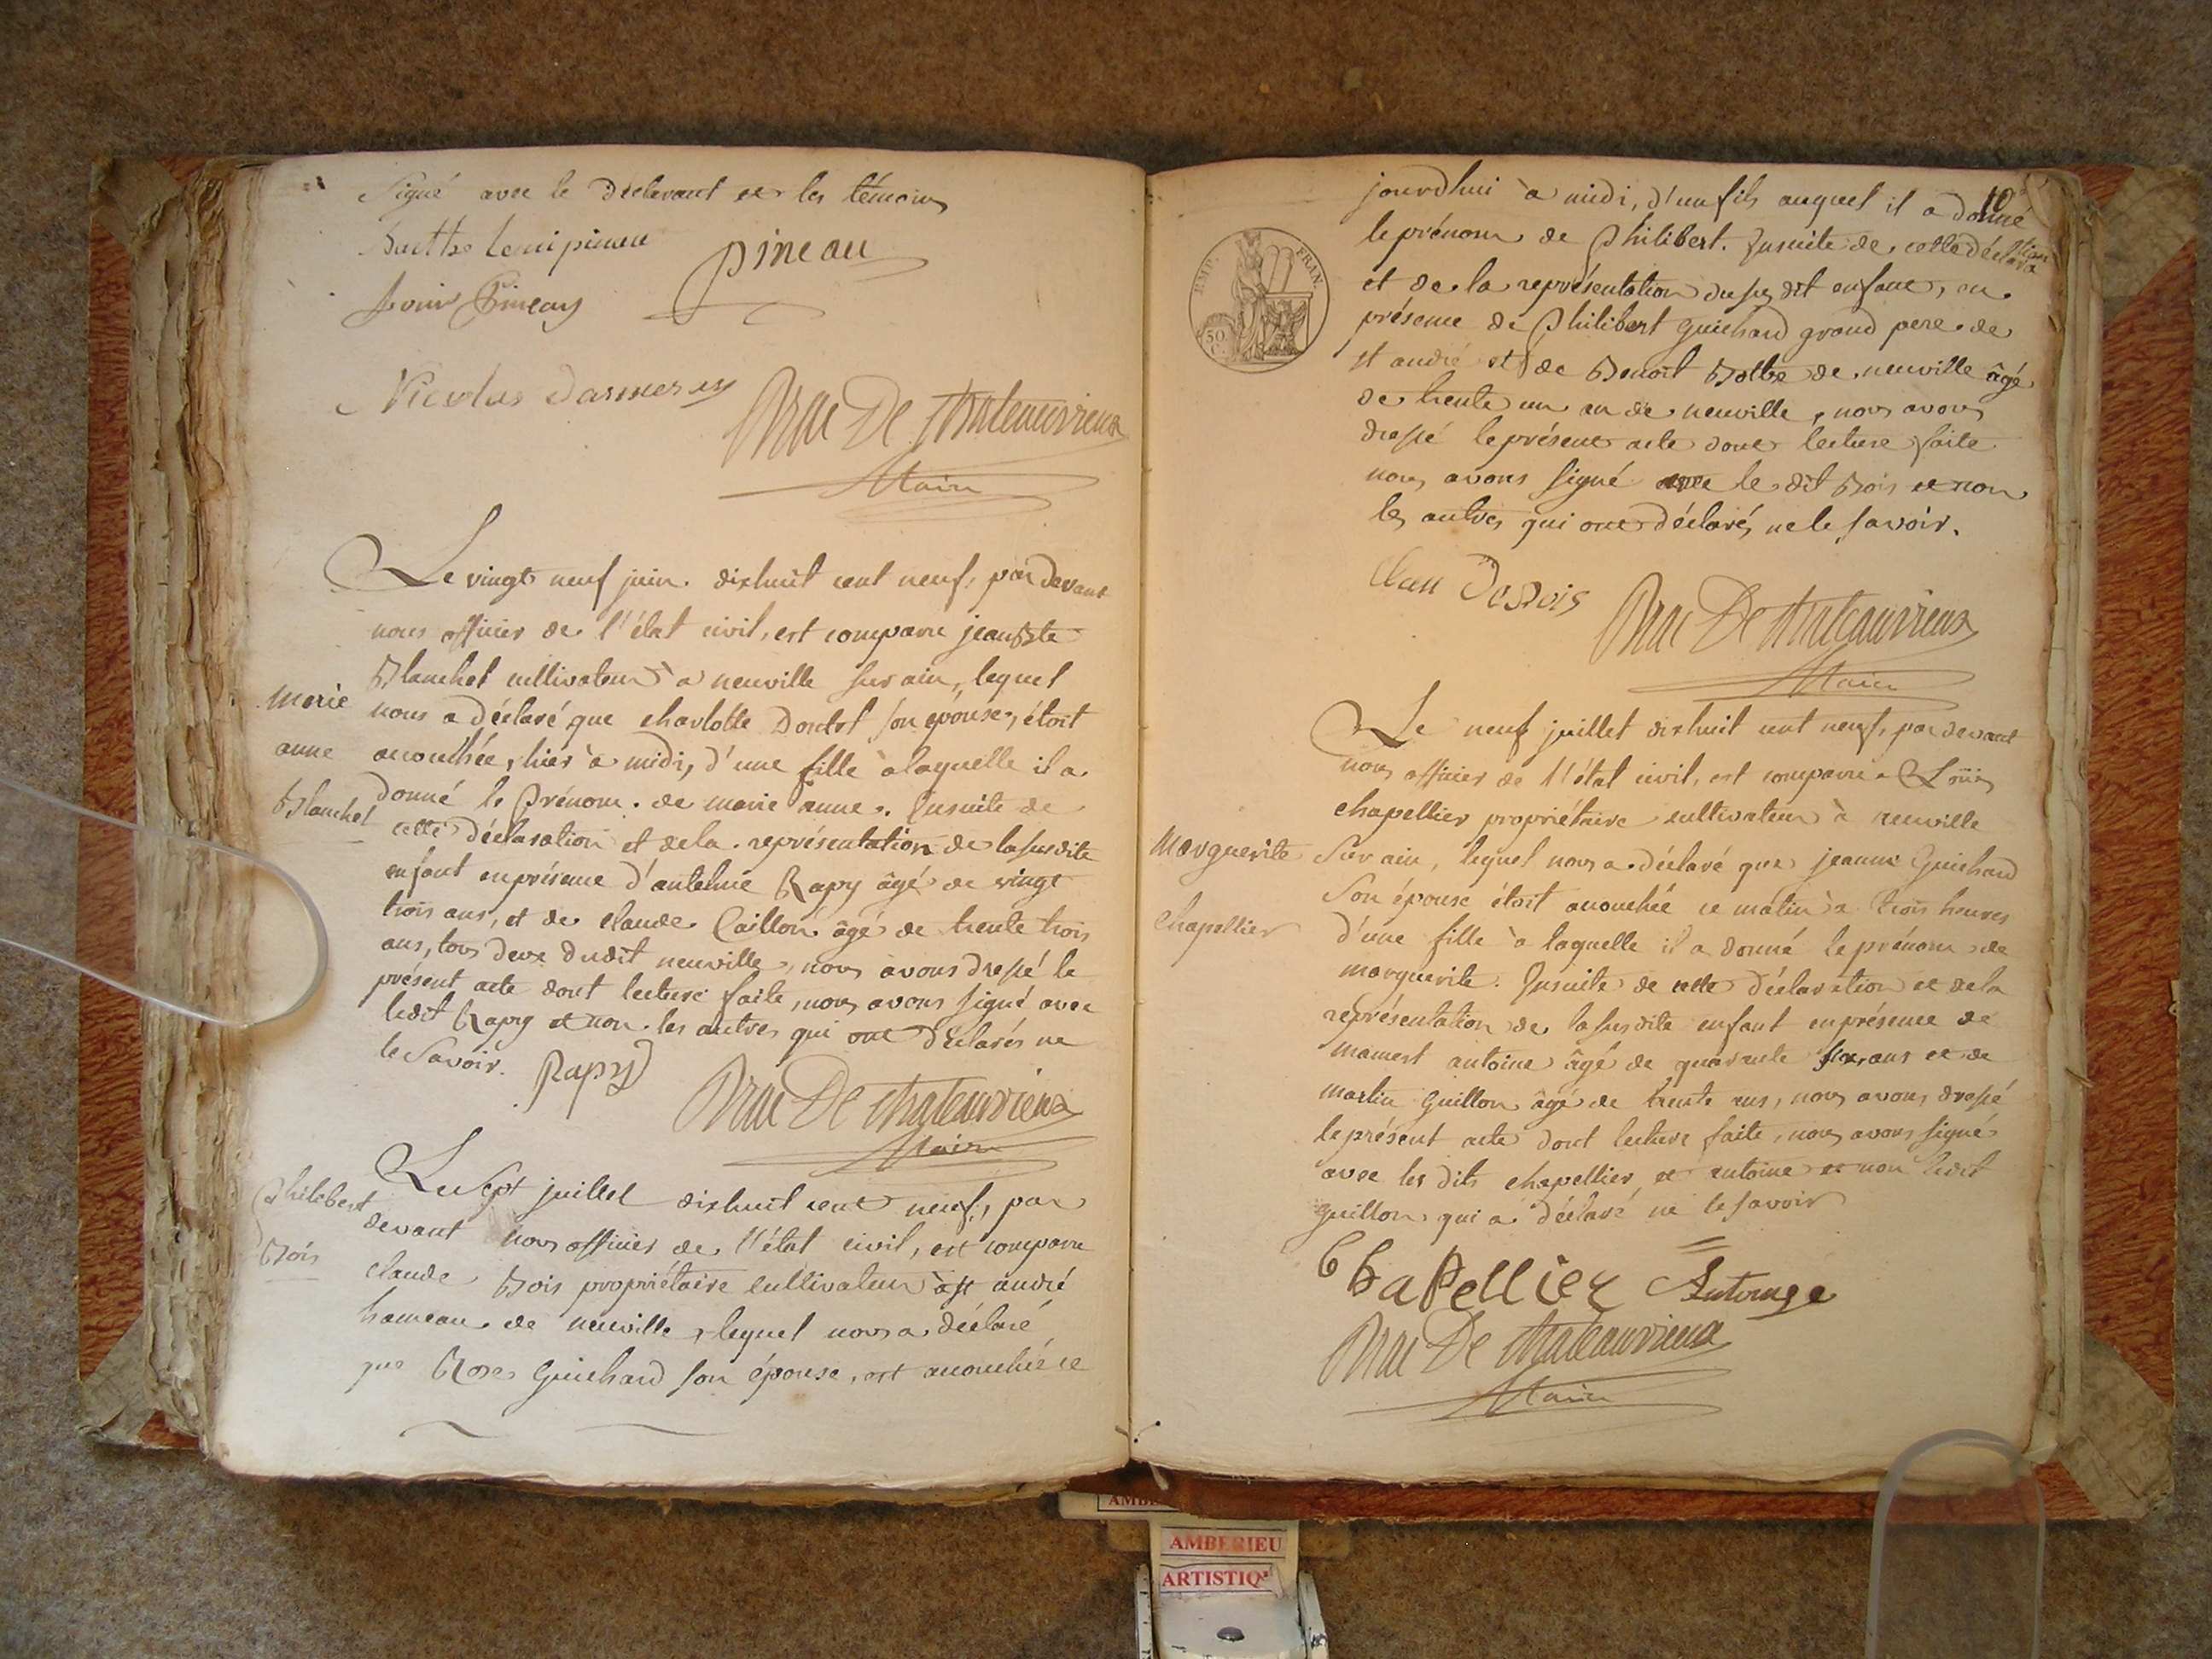 Signé avec le déclarant et les témoins
pineau
Louis Pineau
Nicolas
Brac De Chateauvieux
Maire
Le vingt neuf juin dixhuit cent neuf, par devant
nous officier de l'état civil, est comparu jean Bte
Blanchet cultivateur à neuville sur ain, lequel
Marie
nous a déclaré que charlotte son épouse, étoit
anne
accouchée, hier à midi, d'une fille à laquelle il a
Blanchet
donné le prénom de marie anne. Ensuite de
cette déclaration et de la représentation de la susdite
enfant en présence d'antelme Rapy âgé de vingt
trois ans, et de claude Caillon âgé de trente trois
ans, tous deux dudit neuville, nous avons dressé le
présent acte dont lecture faite, nous avons signé avec
ledit Rapy et non les autres qui ont déclarés ne
le savoir.
Rapy
Brac De Chateauvieux
Maire
Philibert
Bois
Le sept juillet dixhuit cent neuf, par
devant nous officier de l'état civil, est comparu
claude Bois propriétaire cultivateur à st andré
hameau de neuville, lequel nous a déclaré
que Rose Guichard son épouse, est accouchée ce
10
jourdhui à midi, d'un fils auquel il a donné
le prénom de Philibert. Ensuite de cette déclaration
EMP. FRAN.
50 C.
et de la représentation du susdit enfant, en
présence de Philibert Guichard grand pere de
st andré et de Benoit de neuville âgé
de trente un an de neuville, nous avons
dressé le présent acte dont lecture faite
nous avons signé avec le dit Bois et non
les autres qui ont déclarés ne le savoir.
Brac De Chateauvieux
Maire
Le neuf juillet dixhuit cent neuf, par devant
nous officier de l'état civil, est comparu Louis
chapellier propriétaire cultivateur à neuville
Marguerite
chapellier
sur ain, lequel nous a déclaré que jeanne Guichard
son épouse étoit accouchée ce matin à trois heures
d'une fille à laquelle il a donné le prénom de
marguerite. Ensuite de cette déclaration et de la
représentation de la susdite enfant en présence de
mamert antoine âgé de quarante six ans et de
martin Guillon âgé de trente ans, nous avons dressé
le présent acte dont lecture faite, nous avons signé
avec les dits chapellier et antoine et non ledit
guillon qui a déclaré ne le savoir
ChaPellier
Brac De Chateauvieux
Maire
AMBERIEU
ARTISTIQ